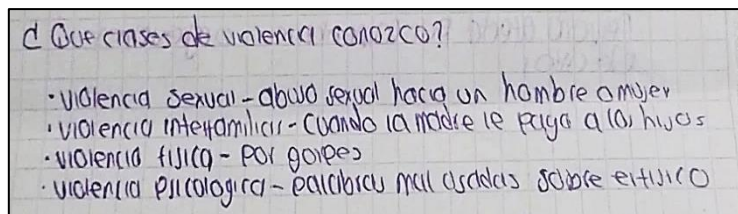 ¿ Que clases de violencia conozco?
• violencia sexual - abuso sexual hacia un hombre o mujer
• violencia interfamiliar - Cuando la madre le pega a los hijos
• violencia fisica - Por golpes
• violencia psicologica - palabras mal usadas sobre el fisico